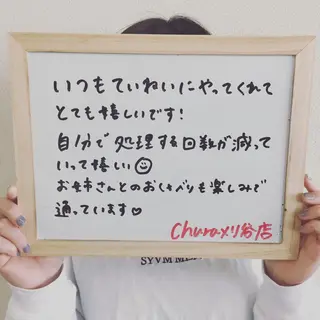 いつもていねいにやってくれて
とても嬉しいです!
自分で処理する回数が減って
いって嬉しい☺
お姉さんとのおしゃべりも楽しみで
通っています♡
Churaメリ谷店
SYVM ME